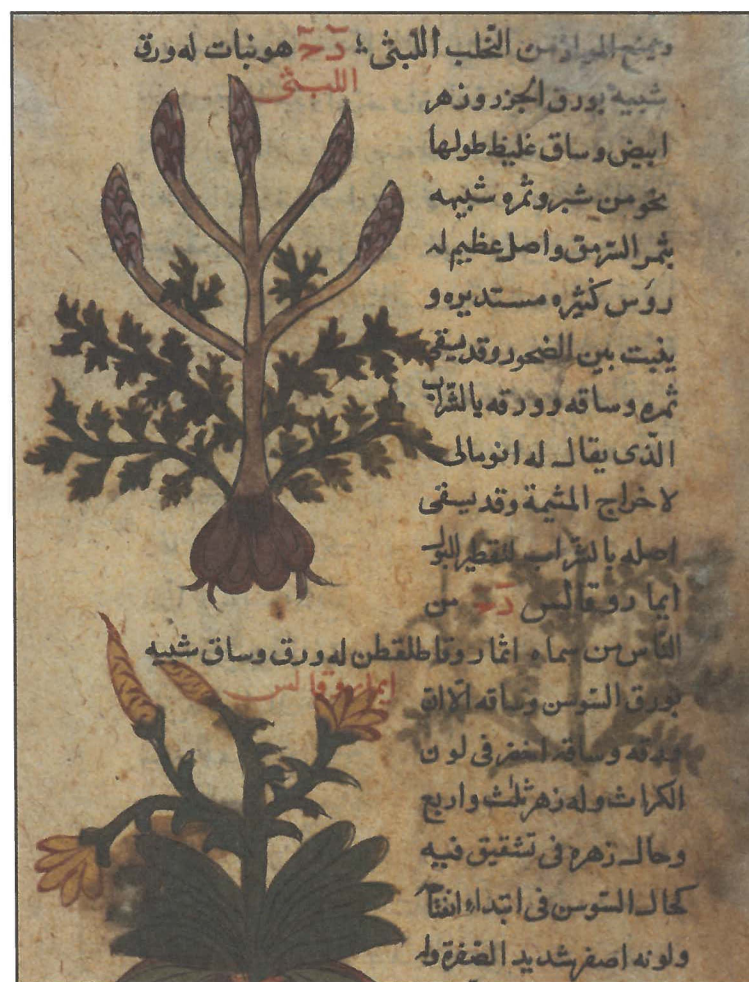 ويمنع المواد من التحلب اللبثى د ح هو نبات له ورق
اللبثى
شبيه بورق الجزر وزهر
ابيض وساق غليظ طولها
نحو من شبر وثمره شبيهه
بثمر السرمق واصل عظيم له
روس كثيره مستديره و
ينبت بين الصخور وقد يسقى
ثمره وساقه وورقه بالشراب
الذى يقال له انومالى
لاخراج المشيمة وقد يسقى
اصله بالشراب لتقطير البول
ايماروقالس د ح من
الناس من سماه انماروقاطلقطن له ورق وساق شبيه
ايماروقالس
بورق السوسن وساقه الا ان
ورقه وساقه اخضر فى لون
الكراث وله زهر ثلث واربع
وحال زهره فى تشقيق فيه
كحال السوسن فى ابتداء انفتاح
ولونه اصفر شديد الصفرة وله